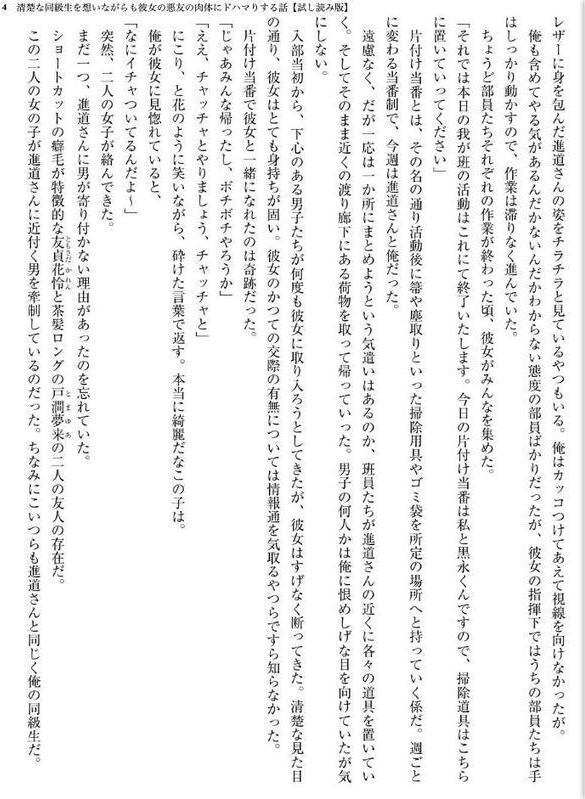 4　清楚な同級生を想いながらも彼女の悪友の肉体にドハマりする話【試し読み版】
レザーに身を包んだ進道さんの姿をチラチラと見ているやつもいる。俺はカッコつけてあえて視線を向けなかったが。
　俺も含めてやる気があるんだかないんだかわからない態度の部員ばかりだったが、彼女の指揮下ではうちの部員たちは手
はしっかり動かすので、作業は滞りなく進んでいた。
　ちょうど部員たちそれぞれの作業が終わった頃、彼女がみんなを集めた。
「それでは本日の我が班の活動はこれにて終了いたします。今日の片付け当番は私と黒永くんですので、掃除道具はこちら
に置いていってください」
　片付け当番とは、その名の通り活動後に箒や塵取りといった掃除用具やゴミ袋を所定の場所へと持っていく係だ。週ごと
に変わる当番制で、今週は進道さんと俺だった。
　遠慮なく、だが一応は一か所にまとめようという気遣いはあるのか、班員たちが進道さんの近くに各々の道具を置いてい
く。そしてそのまま近くの渡り廊下にある荷物を取って帰っていった。男子の何人かは俺に恨めしげな目を向けていたが気
にしない。
　入部当初から、下心のある男子たちが何度も彼女に取り入ろうとしてきたが、彼女はすげなく断ってきた。清楚な見た目
の通り、彼女はとても身持ちが固い。彼女のかつての交際の有無については情報通を気取るやつらですら知らなかった。
　片付け当番で彼女と一緒になれたのは奇跡だった。
「じゃあみんな帰ったし、ボチボチやろうか」
「ええ、チャッチャとやりましょう、チャッチャと」
　にこり、と花のように笑いながら、砕けた言葉で返す。本当に綺麗だなこの子は。
　俺が彼女に見惚れていると、
「なにイチャついてるんだよ～」
　突然、二人の女子が絡んできた。
　まだ一つ、進道さんに男が寄り付かない理由があったのを忘れていた。
　ショートカットの癖毛が特徴的な友貞花怜と茶髪ロングの戸澗夢来の二人の友人の存在だ。
　この二人の女の子が進道さんに近付く男を牽制しているのだった。ちなみにこいつらも進道さんと同じく俺の同級生だ。